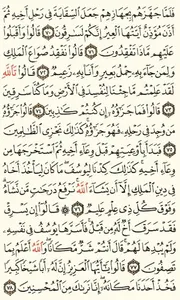 فَلَمَّا جَهَّزَهُم بِجَهَازِهِمْ جَعَلَ السِّقَايَةَ فِي رَحْلِ أَخِيهِ ثُمَّ
أَذَّنَ مُؤَذِّنٌ أَيَّتُهَا الْعِيرُ إِنَّكُمْ لَسَارِقُونَ ٧٠ قَالُوا وَأَقْبَلُوا
عَلَيْهِم مَّاذَا تَفْقِدُونَ ٧١ قَالُوا نَفْقِدُ صُوَاعَ الْمَلِكِ
وَلِمَن جَاءَ بِهِ حِمْلُ بَعِيرٍ وَأَنَا بِهِ زَعِيمٌ ٧٢ قَالُوا تَاللَّهِ
لَقَدْ عَلِمْتُم مَّا جِئْنَا لِنُفْسِدَ فِي الْأَرْضِ وَمَا كُنَّا سَارِقِينَ
٧٣ قَالُوا فَمَا جَزَاؤُهُ إِن كُنتُمْ كَاذِبِينَ ٧٤ قَالُوا جَزَاؤُهُ
مَن وُجِدَ فِي رَحْلِهِ فَهُوَ جَزَاؤُهُ كَذَلِكَ نَجْزِي الظَّالِمِينَ
٧٥ فَبَدَأَ بِأَوْعِيَتِهِمْ قَبْلَ وِعَاءِ أَخِيهِ ثُمَّ اسْتَخْرَجَهَا مِن
وِعَاءِ أَخِيهِ كَذَلِكَ كِدْنَا لِيُوسُفَ مَا كَانَ لِيَأْخُذَ أَخَاهُ
فِي دِينِ الْمَلِكِ إِلَّا أَن يَشَاءَ اللَّهُ نَرْفَعُ دَرَجَاتٍ مَّن نَّشَاءُ
وَفَوْقَ كُلِّ ذِي عِلْمٍ عَلِيمٌ ٧٦ قَالُوا إِن يَسْرِقْ
فَقَدْ سَرَقَ أَخٌ لَّهُ مِن قَبْلُ فَأَسَرَّهَا يُوسُفُ فِي نَفْسِهِ
وَلَمْ يُبْدِهَا لَهُمْ قَالَ أَنتُمْ شَرٌّ مَّكَانًا وَاللَّهُ أَعْلَمُ بِمَا
تَصِفُونَ ٧٧ قَالُوا يَا أَيُّهَا الْعَزِيزُ إِنَّ لَهُ أَبًا شَيْخًا كَبِيرًا
فَخُذْ أَحَدَنَا مَكَانَهُ إِنَّا نَرَاكَ مِنَ الْمُحْسِنِينَ ٧٨